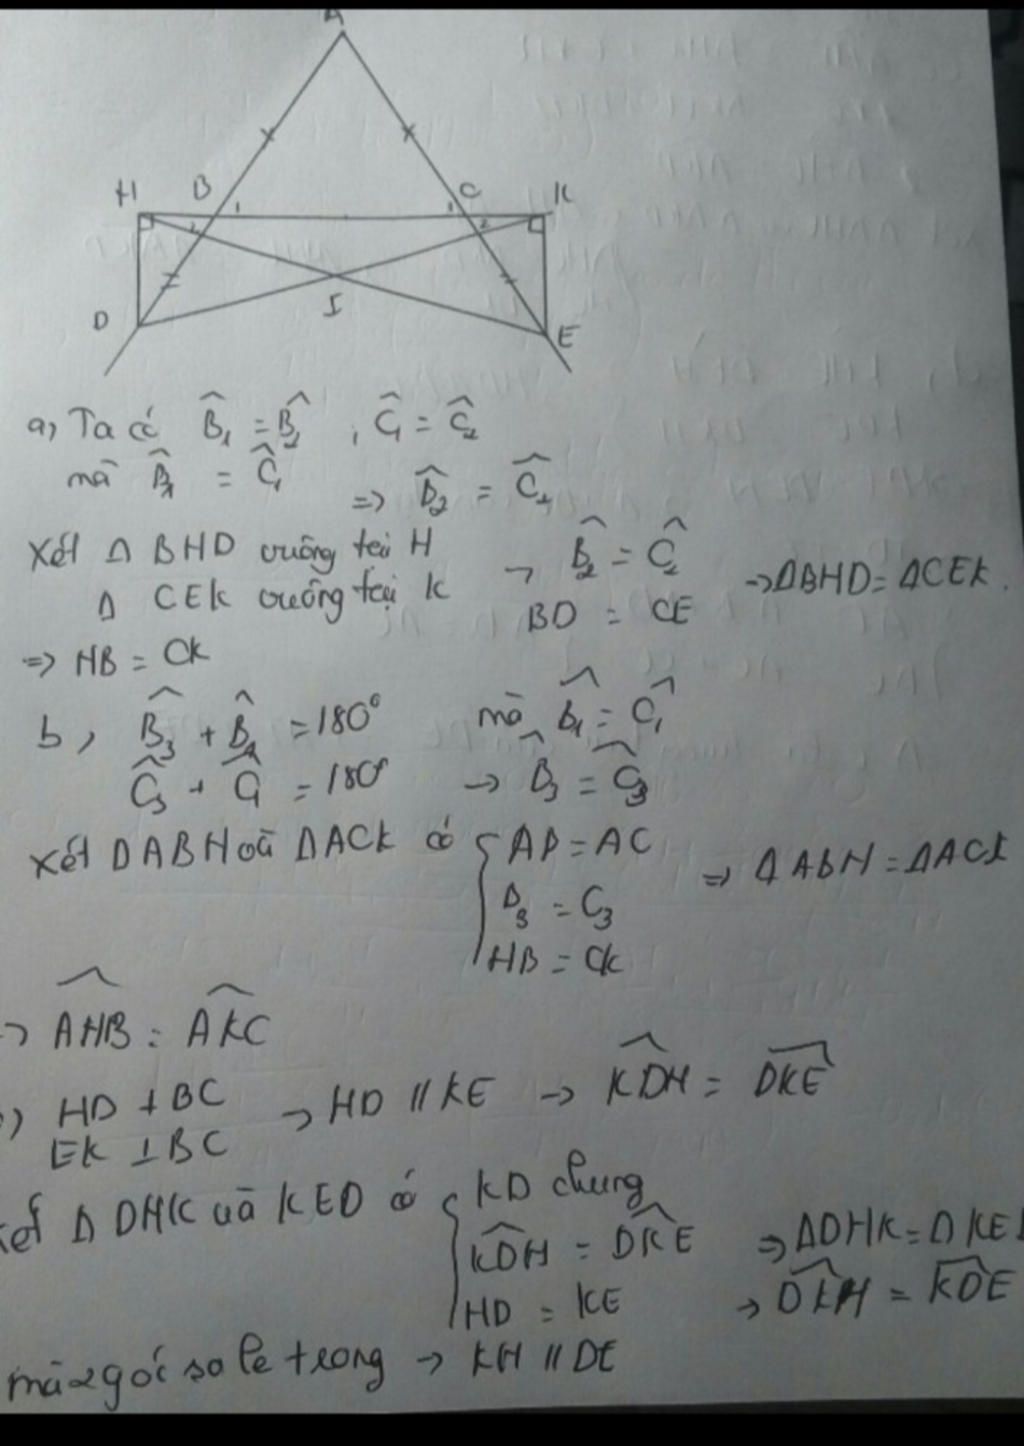 A
H B C K
1 1
2 2
I
D E
a, Ta có B̂₁ = B̂₂ , Ĉ₁ = Ĉ₂
mà B̂₁ = Ĉ₁
=> B̂₂ = Ĉ₂
Xét Δ BHD vuông tại H
Δ CEK vuông tại K
→ B̂₂ = Ĉ₂
BD = CE
→ ΔBHD = ΔCEK.
=> HB = CK
b, B̂₃ + B̂₁ = 180° mà B̂₁ = Ĉ₁
Ĉ₃ + Ĉ₁ = 180° → B̂₃ = Ĉ₃
Xét ΔABH và ΔACK có { AB = AC
B₃ = C₃
HB = CK
=> ΔABH = ΔACK
→ AHB̂ = AKĈ
) HD ⊥ BC
EK ⊥ BC
→ HD // KE → KDĤ = DKÊ
xét Δ DHK và KED có { KD chung
KDĤ = DKÊ => ΔDHK = ΔKED
HD = KE → DKĤ = KDÊ
mà 2 góc so le trong → KH // DE